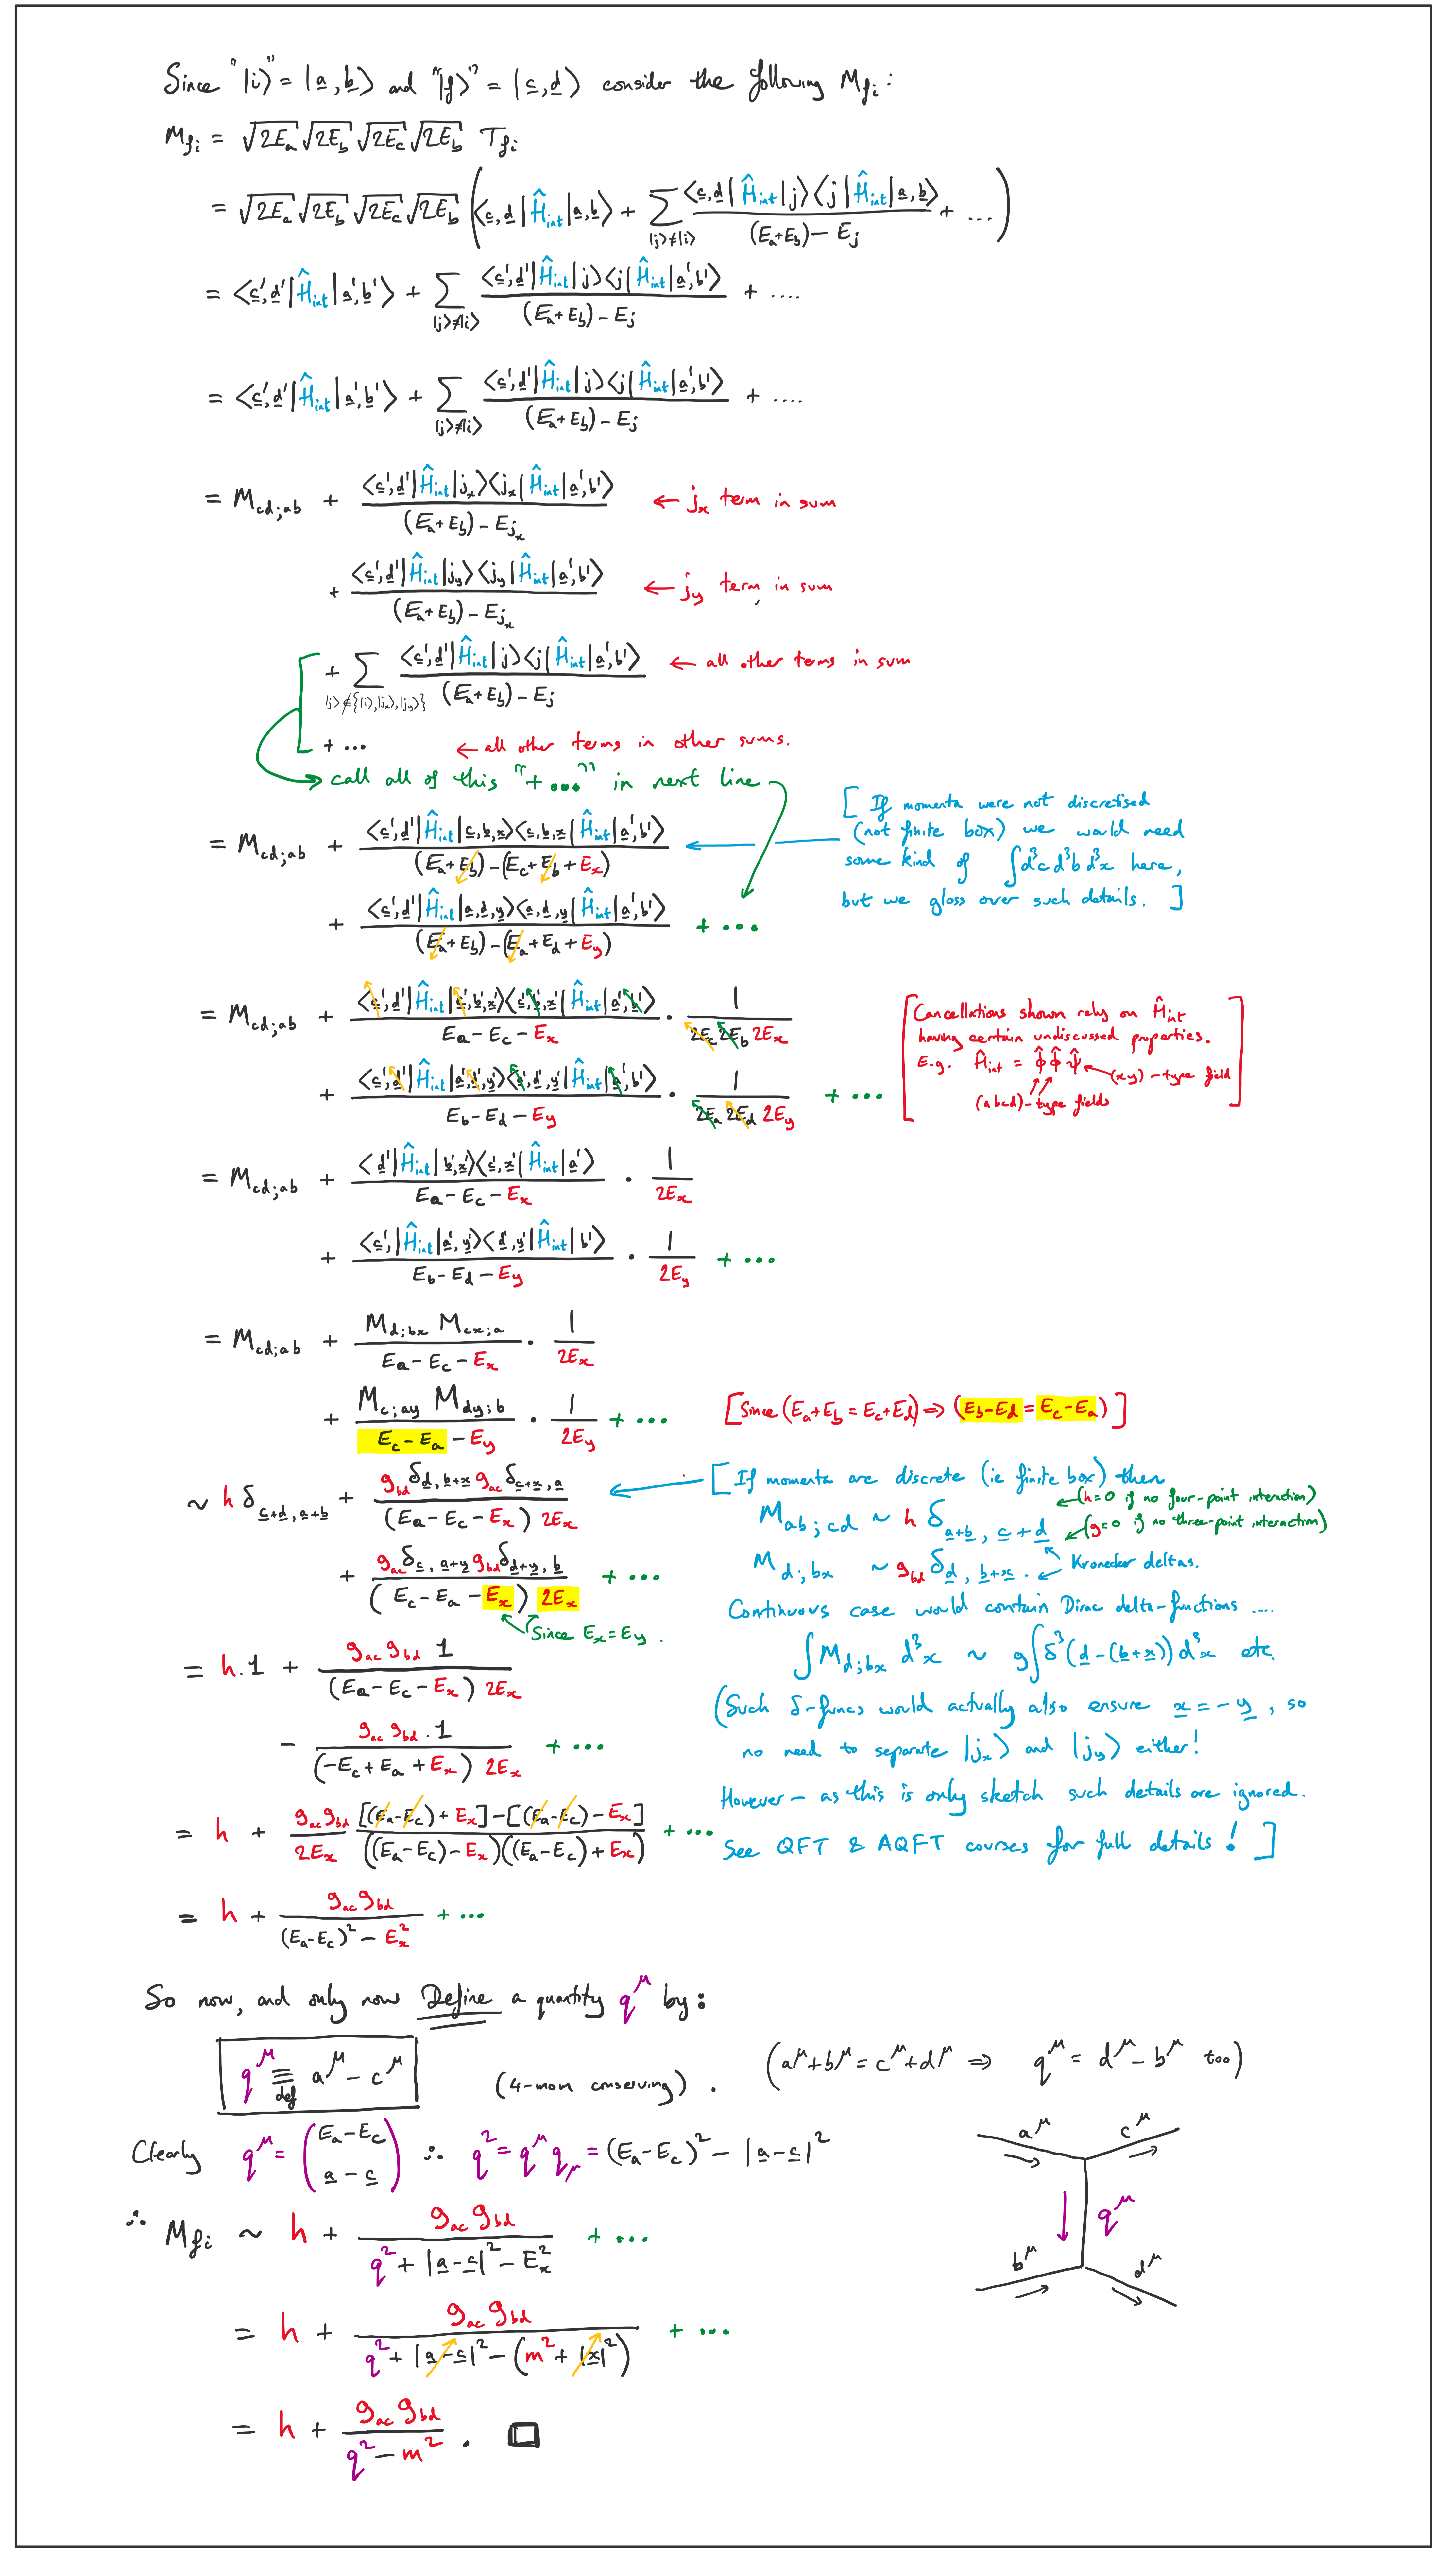 Since "|i⟩" = |a̲, b̲⟩ and "|f⟩" = |c̲, d̲⟩ consider the following M_fi :
M_fi = √(2E_a) √(2E_b) √(2E_c) √(2E_b) T_fi
= √(2E_a) √(2E_b) √(2E_c) √(2E_b) ( ⟨c̲, d̲| Ĥ_int |a̲, b̲⟩ + ∑_{|j⟩≠|i⟩} ⟨c̲, d̲| Ĥ_int |j⟩⟨j| Ĥ_int |a̲, b̲⟩ / ((E_a+E_b) − E_j) + ... )
= ⟨c̲', d̲'| Ĥ_int |a̲', b̲'⟩ + ∑_{|j⟩≠|i⟩} ⟨c̲', d̲'| Ĥ_int |j⟩⟨j| Ĥ_int |a̲', b̲'⟩ / ((E_a+E_b) − E_j) + ....
= ⟨c̲', d̲'| Ĥ_int |a̲', b̲'⟩ + ∑_{|j⟩≠|i⟩} ⟨c̲', d̲'| Ĥ_int |j⟩⟨j| Ĥ_int |a̲', b̲'⟩ / ((E_a+E_b) − E_j) + ....
= M_cd;ab + ⟨c̲', d̲'| Ĥ_int |j_x⟩⟨j_x| Ĥ_int |a̲', b̲'⟩ / ((E_a+E_b) − E_{j_x}) ← j_x term in sum
+ ⟨c̲', d̲'| Ĥ_int |j_y⟩⟨j_y| Ĥ_int |a̲', b̲'⟩ / ((E_a+E_b) − E_{j_x}) ← j_y term in sum
+ ∑_{|j⟩∉{|i⟩,|j_x⟩,|j_y⟩}} ⟨c̲', d̲'| Ĥ_int |j⟩⟨j| Ĥ_int |a̲', b̲'⟩ / ((E_a+E_b) − E_j) ← all other terms in sum
+ ... ← all other terms in other sums.
→ call all of this "+ ..." in next line
[ If momenta were not discretised
(not finite box) we would need
some kind of ∫d³c d³b d³x here,
but we gloss over such details. ]
= M_cd;ab + ⟨c̲', d̲'| Ĥ_int |c̲, b̲, x̲⟩⟨c̲, b̲, x̲| Ĥ_int |a̲', b̲'⟩ / ((E_a+E_b) − (E_c + E_b + E_x))
+ ⟨c̲', d̲'| Ĥ_int |a̲, d̲, y̲⟩⟨a̲, d̲, y̲| Ĥ_int |a̲', b̲'⟩ / ((E_a+E_b) − (E_a + E_d + E_y)) + ...
= M_cd;ab + ⟨c̲', d̲'| Ĥ_int |c̲', b̲', x̲'⟩⟨c̲', b̲', x̲'| Ĥ_int |a̲', b̲'⟩ / (E_a − E_c − E_x) · 1 / (2E_c 2E_b 2E_x)
+ ⟨c̲', d̲'| Ĥ_int |a̲', d̲', y̲'⟩⟨a̲', d̲', y̲'| Ĥ_int |a̲', b̲'⟩ / (E_b − E_d − E_y) · 1 / (2E_a 2E_d 2E_y) + ...
[ Cancellations shown rely on Ĥ_int
having certain undiscussed properties.
E.g. Ĥ_int = φ̂ φ̂ ψ̂ ← (xy)-type field
(abcd)-type fields ]
= M_cd;ab + ⟨d̲'| Ĥ_int |b̲', x̲'⟩⟨c̲', x̲'| Ĥ_int |a̲'⟩ / (E_a − E_c − E_x) · 1 / 2E_x
+ ⟨c̲'| Ĥ_int |a̲', y̲'⟩⟨d̲', y̲'| Ĥ_int |b'⟩ / (E_b − E_d − E_y) · 1 / 2E_y + ...
= M_cd;ab + M_d;bx M_cx;a / (E_a − E_c − E_x) · 1 / 2E_x
+ M_c;ay M_dy;b / (E_c − E_a − E_y) · 1 / 2E_y + ... [Since (E_a+E_b = E_c+E_d) ⇒ (E_b−E_d = E_c−E_a)]
∼ h δ_{c̲+d̲, a̲+b̲} + g_bd δ_{d̲, b̲+x̲} g_ac δ_{c̲+x̲, a̲} / ((E_a − E_c − E_x) 2E_x)
+ g_ac δ_{c̲, a̲+y̲} g_bd δ_{d̲+y̲, b̲} / ((E_c − E_a − E_x) 2E_x) + ...
Since E_x = E_y .
[ If momenta are discrete (ie finite box) then
M_ab;cd ∼ h δ_{a̲+b̲, c̲+d̲} ← (h=0 if no four-point interaction)
← (g=0 if no three-point interaction)
M_d;bx ∼ g_bd δ_{d̲, b̲+x̲} . ← Kronecker deltas.
Continuous case would contain Dirac delta-functions ....
∫M_d;bx d³x ∼ g∫δ³(d̲−(b̲+x̲))d³x etc.
(Such δ-funcs would actually also ensure x̲ = −y̲, so
no need to separate |j_x⟩ and |j_y⟩ either!
However − as this is only sketch such details are ignored.
See QFT & AQFT courses for full details ! ]
= h.1 + g_ac g_bd 1 / ((E_a − E_c − E_x) 2E_x)
− g_ac g_bd . 1 / ((−E_c + E_a + E_x) 2E_x) + ...
= h + g_ac g_bd / 2E_x [(E_a−E_c) + E_x] − [(E_a−E_c) − E_x] / (((E_a−E_c) − E_x)((E_a−E_c) + E_x)) + ...
= h + g_ac g_bd / ((E_a−E_c)² − E_x²) + ...
So now, and only now Define a quantity q^μ by:
q^μ ≡_def a^μ − c^μ (4-mom conserving) . (a^μ+b^μ = c^μ+d^μ ⇒ q^μ = d^μ − b^μ too)
Clearly q^μ = (E_a−E_c / a̲ − c̲) ∴ q² = q^μ q_μ = (E_a−E_c)² − |a̲−c̲|²
∴ M_fi ∼ h + g_ac g_bd / (q² + |a̲−c̲|² − E_x²) + ...
= h + g_ac g_bd / (q² + |a̲−c̲|² − (m² + |x̲|²)) + ...
= h + g_ac g_bd / (q² − m²) . □
a^μ c^μ
q^μ
b^μ d^μ